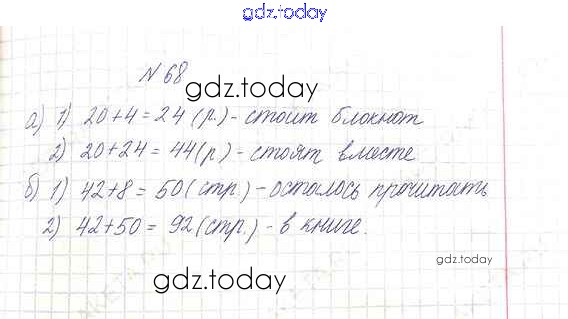 gdz.today
№ 68
gdz.today
а) 1) 20+4=24 (р.) - стоит блокнот
2) 20+24=44(р) - стоят вместе
б) 1) 42+8=50(стр) - осталось прочитать
2) 42+50=92(стр.) - в книге.
gdz.today
gdz.today